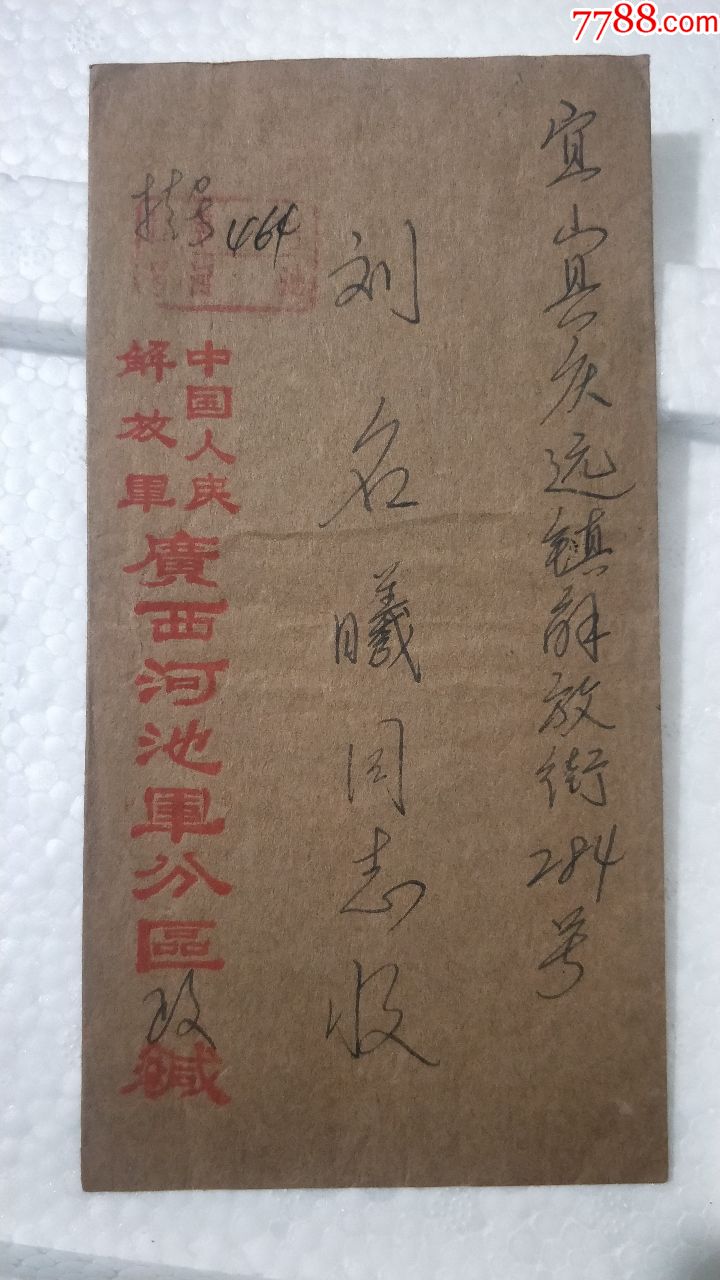 7788.com
宜山县庆远镇解放街284号
刘名曦同志收
挂号464
中国人民
解放軍
廣西河池軍分區
政
缄
池